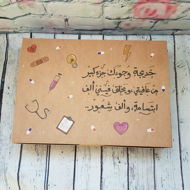 جرعة وجودك جزء كبير
من عافيتي ، ويخلق فيني ألف
ابتسامة، وألف شعور .